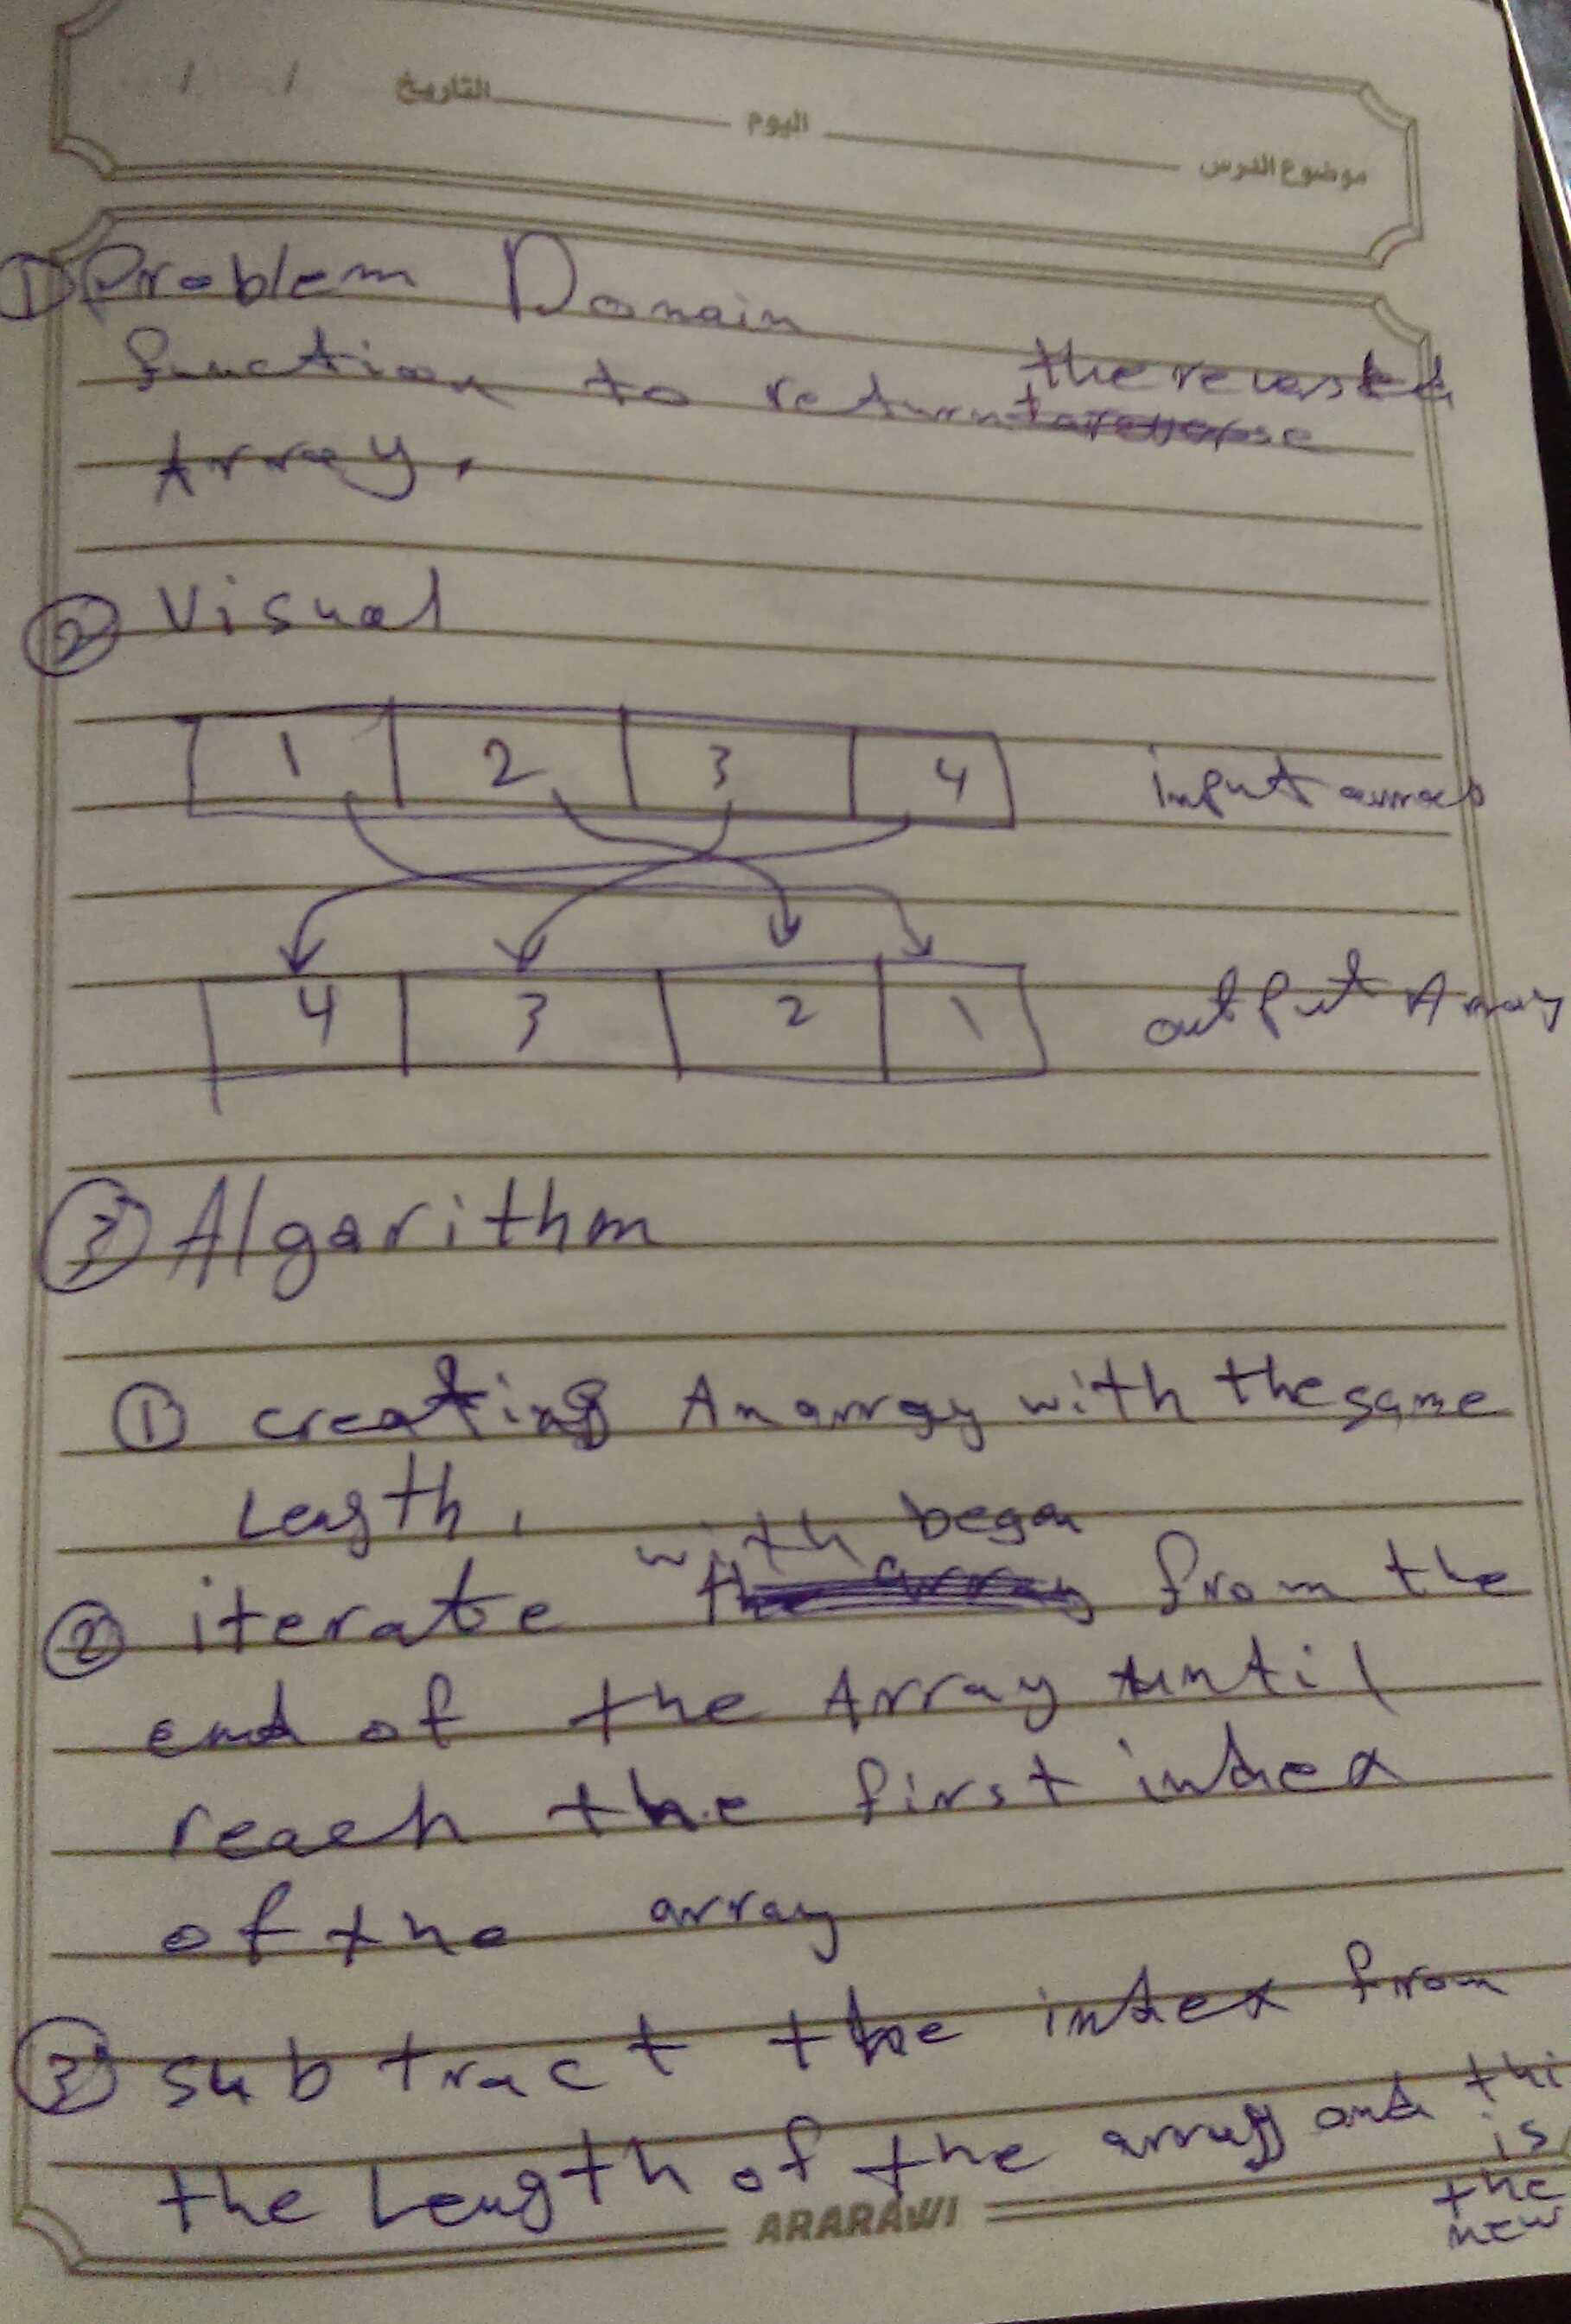 التاريخ / /
اليوم
موضوع الدرس
① Problem Domain
function to return the reversed
Array.
② Visual
1 2 3 4 input array
4 3 2 1 output Array
③ Algarithm
① creating An array with the same
Length.
② iterate with began from the
end of the Array until
reach the first index
of the array
③ subtract the index from
the Length of the array and this
is
the
new
ARARAWI